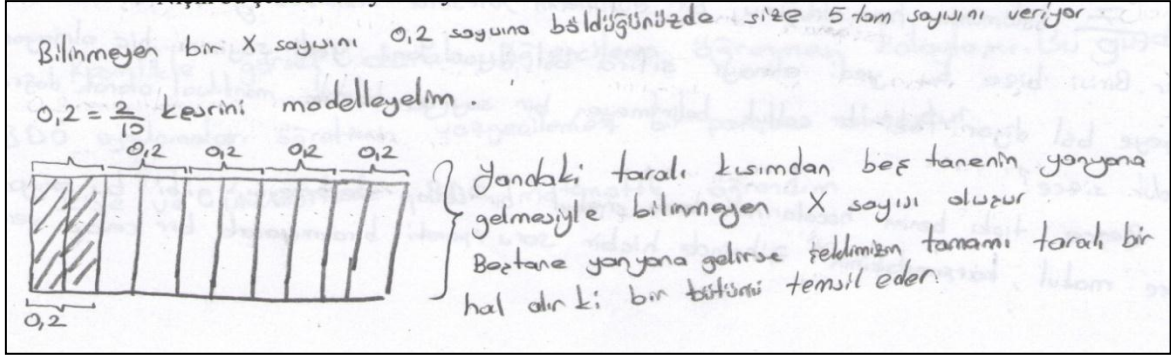 Bilinmeyen bir X sayısını 0,2 sayısına böldüğünüzde size 5 tam sayısını veriyor
0,2 = 2/10 kesrini modelleyelim.
0,2 0,2 0,2 0,2
0,2
Yandaki taralı kısımdan beş tanenin yanyana
gelmesiyle bilinmeyen X sayısı oluşur
Beştane yanyana gelirse şeklimizin tamamı taralı bir
hal alır ki bir bütünü temsil eder.